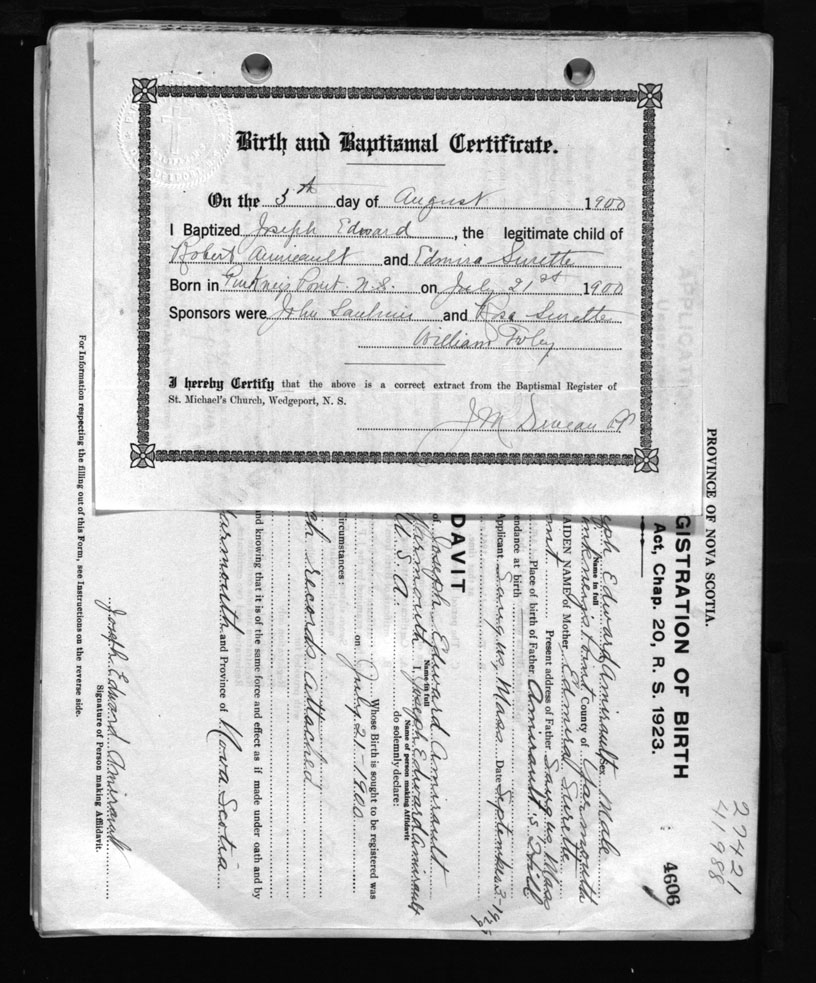 Birth and Baptismal Certificate.
On the 5th day of August 1900
I Baptized Joseph Edward, the legitimate child of
Robert and Edmira Surette
Born in Pinkneys Point. N.S. on July 21st 1900
Sponsors were John Saulnier and Rose Surette
William Foley
I hereby Certify that the above is a correct extract from the Baptismal Register of
St. Michael's Church, Wedgeport, N. S.
J M
PROVINCE OF NOVA SCOTIA.
27421
41988
GISTRATION OF BIRTH
4606
Act, Chap. 20, R. S. 1923.
eph Edward Amirault Male
Name in full
County of Yarmouth
AIDEN NAME of Mother Edmiral Surette
Present address of Father Saugus Mass
Place of birth of Father Amirault's Hill
endance at birth
Applicant Saugus, Mass. Date September 3-19
DAVIT
of Joseph Edward Amirault
Name in full
Yarmouth I, Joseph Edward Amirault
Name of person making Affidavit
U. S. A. do solemnly declare:
Whose Birth is sought to be registered was
on July 21-1900
ircumstances:
ch records attached
and knowing that it is of the same force and effect as if made under oath and by
Yarmouth and Province of Nova Scotia
Joseph Edward Amirault
Signature of Person making Affidavit.
For Information respecting the filling out of this Form, see Instructions on the reverse side.